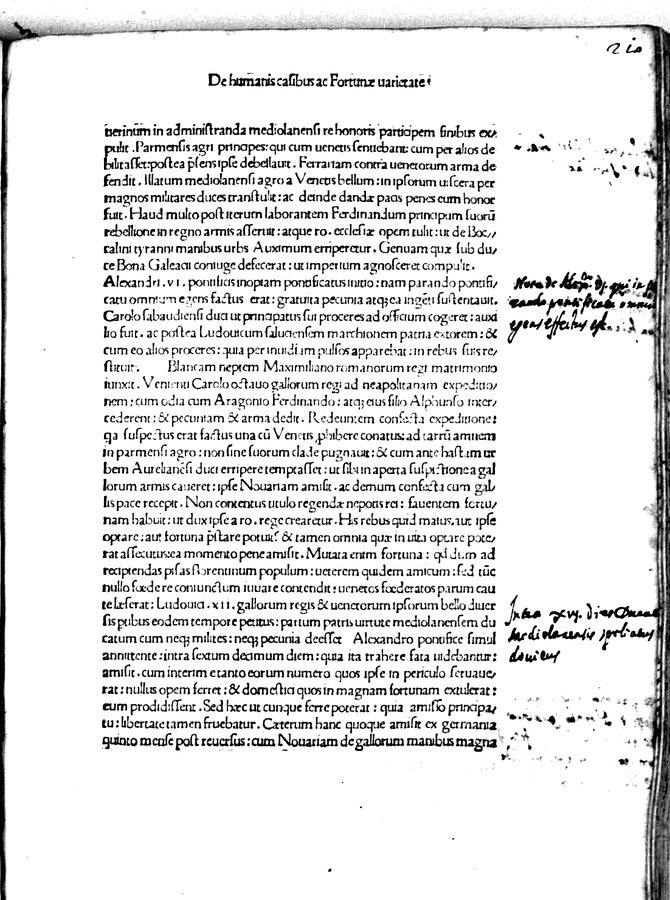 De humanis casibus ac Fortunæ uarietate
uerintim in administranda mediolanensi re honoris participem finibus ex/
pulit. Parmensis agri principes: qui cum uenetis sentiebant: cum per alios de
bilitasset: postea p̃sens ipse debellauit. Ferrariam contra uenetorum arma de
fendit. Illatum mediolanensi agro a Venetis bellum: in ipsorum uiscera per
magnos militares duces transtulit: ac deinde dandæ pacis penes eum honor
fuit. Haud multo post iterum laborantem Ferdinandum principum suorũ
rebellione in regno armis asseruit: atque ro. ecclesiæ opem tulit: ut de Boc//
calini tyranni manibus urbs Auximum erriperetur. Genuam quæ sub du/
ce Bona Galeacii coniuge defecerat: ut imperium agnosceret compulit.
Alexandri. vi. pontificis inopiam pontificatus initio: nam parando pontifi/
catu omnium egens factus erat: gratuita pecunia atq; ea ingẽti sustentauit.
Carolo sabaudiensi duci ut principatus sui proceres ad officium cogeret: auxi
lio fuit. ac postea Ludouicum salucensem marchionem patria extorem: &
cum eo alios proceres: quia per inuidiam pulsos apparebat: in rebus suis re/
stituit. Blancam neptem Maximiliano romanorum regi matrimonio
iunxit. Venienti Carolo octauo gallorum regi ad neapolitanam expeditio/
nem: cum odia cum Aragonio Ferdinando: atq; eius filio Alphonso inter/
cederent: & pecuniam & arma dedit. Redeuntem confecta expeditione:
qa suspectus erat factus una cũ Venetis ꝓhibere conatus: ad tarrũ amnem
in parmensi agro: non sine suorum clade pugnauit: & cum ante hastam ur
bem Aurelianẽsi duci erripere temptasset: ut sibi in aperta suspitione a gal
lorum armis caueret: ipse Nouariam amisit. ac demum confecta cum gal/
lis pace recepit. Non contentus titulo regendæ nepotis rei: fauentem fortu/
nam habuit: ut dux ipse a ro. rege crearetur. His rebus quid maius aut ipse
optare: aut fortuna p̃stare potuit? & tamen omnia quæ in uita optare pote/
rat assecutus: ea momento pene amisit. Mutata enim fortuna: qd dum ad
recipiendas pisas florentinum populum: ueterem quidem amicum: sed tũc
nullo fœdere coniunctum iuuare contendit: uenetos fœderatos parum cau
te læserat: Ludouici. xii. gallorum regis & uenetorum ipsorum bello diuer
sis ptibus eodem tempore petitus: partum patris uirtute mediolanensem du
catum cum neq; milites: neq; pecunia deesset Alexandro pontifice simul
annitente: intra sextum decimum diem: quia ita trahere fata uidebantur:
amisit. cum interim etanto eorum numero quos ipse in periculo seruaue/
rat: nullus opem ferret: & domestici quos in magnam fortunam extulerat:
eum prodidissent. Sed hæc ut cunque ferre poterat: quia amisso principa/
tu: libertate tamen fruebatur. Cæterum hanc quoque amisit ex germania
quinto mense post reuersus: cum Nouariam de gallorum manibus magna
egens effectus est